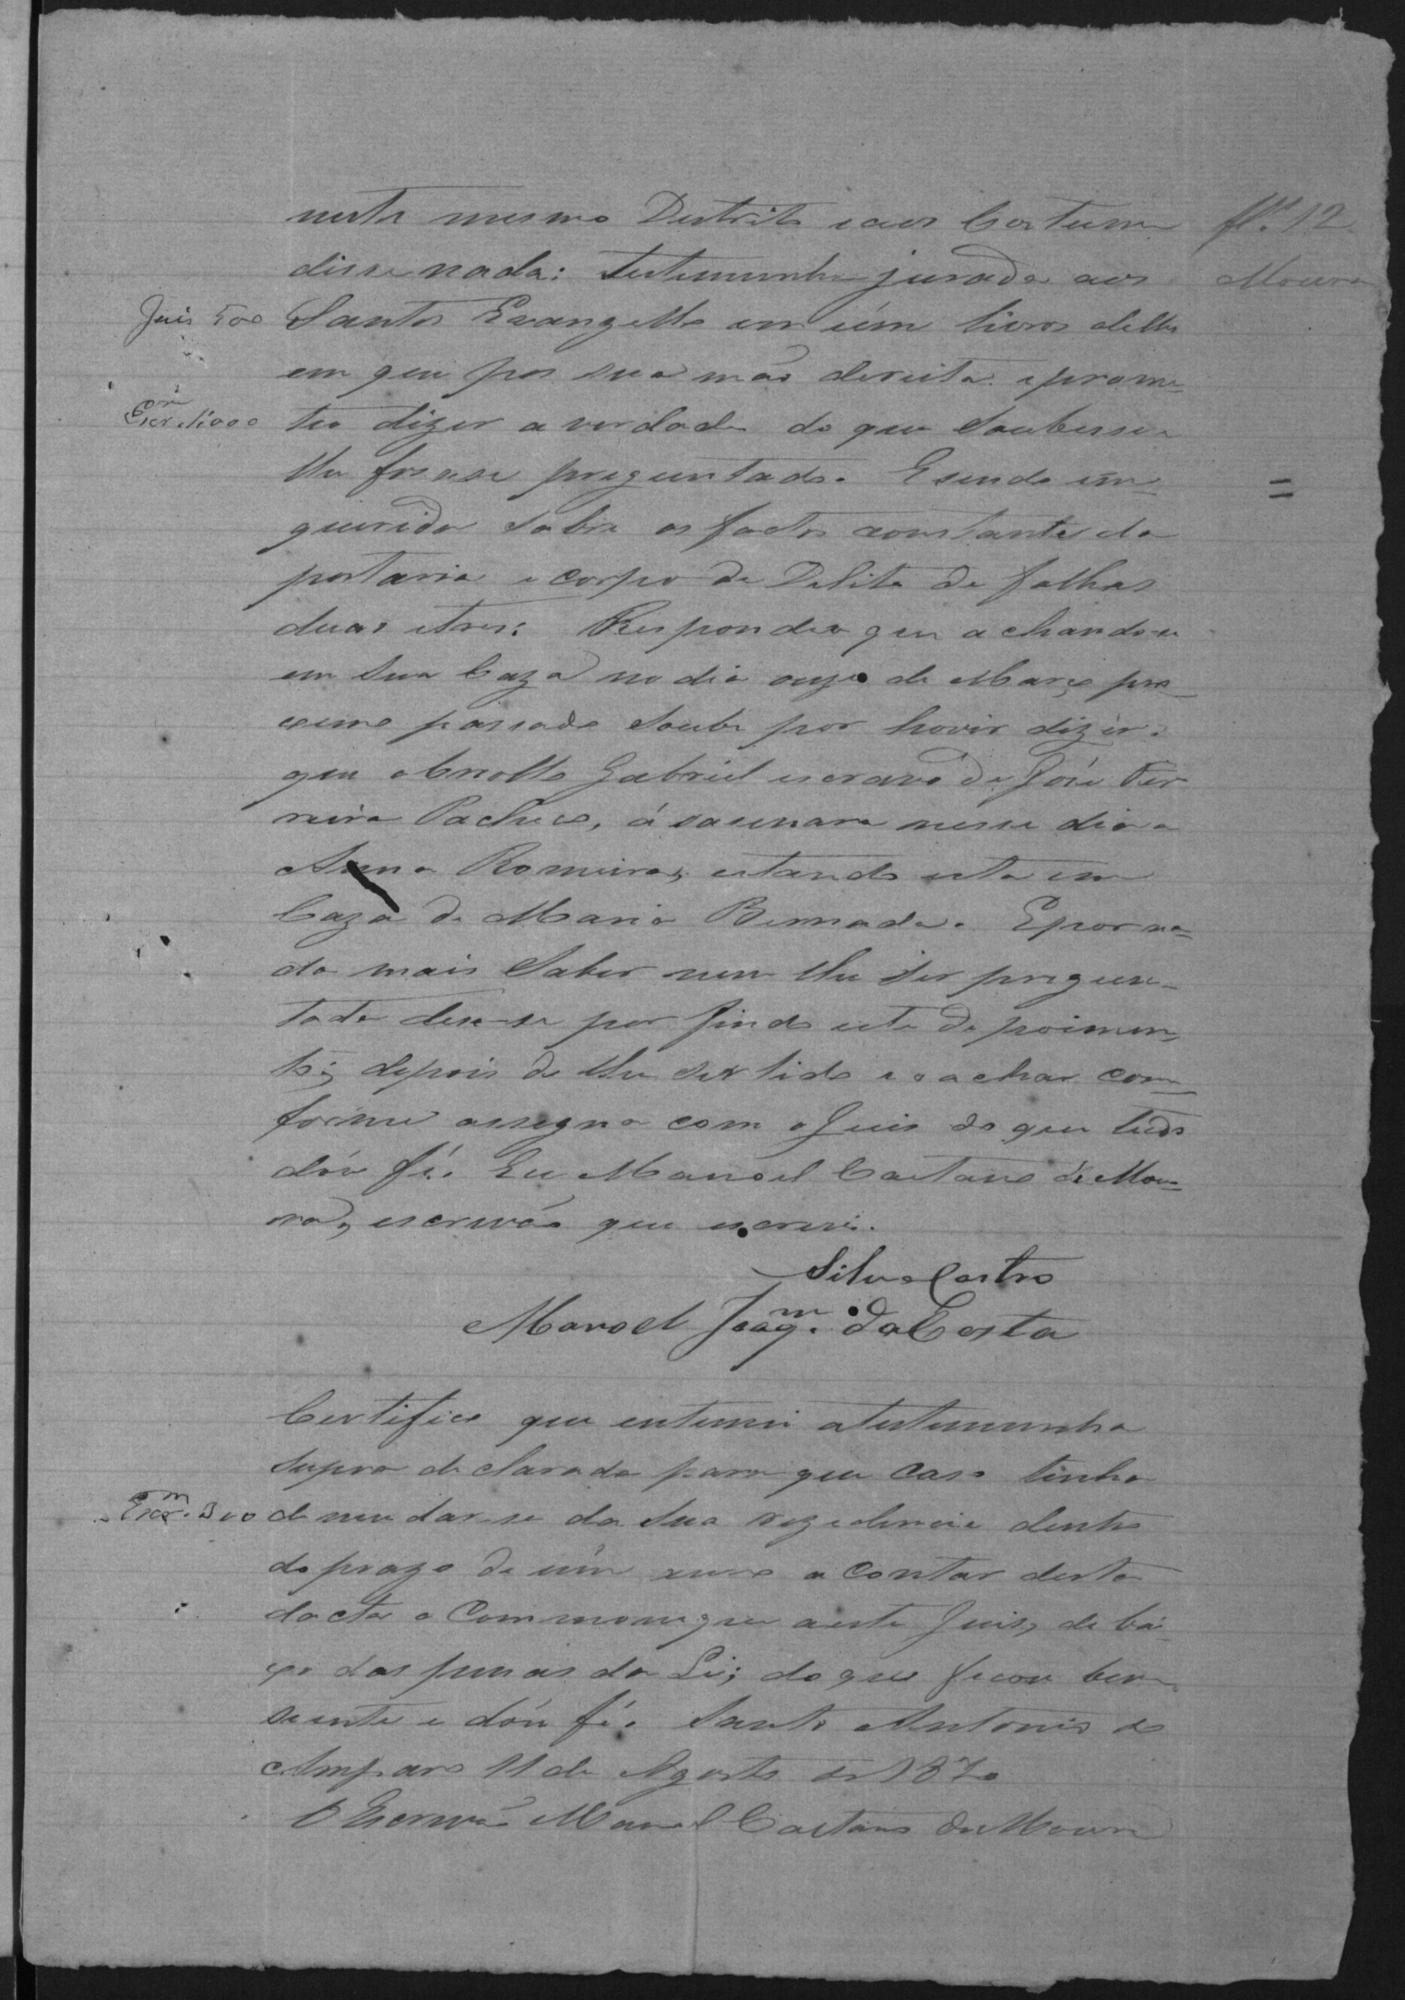 neste mesmo Destrito e aos Costumes fls. 12
disse nada: testemunha jurada aos Moura
Juis 500 Santos Evangelhos em úm livros delles
em que pos sua mão dereita e prome-
Escrm. 1000 teo dizer a verdade do que Soubesse e
lhe fosse preguntado. E sendo im- =
querida Sobre os factos constante da
portaria e corpo de Delito de folhas
duas e tres: Respondeo que achando-se
em Sua Caza no dia onze de Março pro-
ximo passado Soube por hovir dizer:
que o Criollo Gabriel escravo de José Fer
reira Pacheco, ásacenara nesse dia a
Anna Romeira, estando esta em
Caza de Maria Bernada. E por na-
da mais Saber nem lhe ser pregun-
tado deu-se por findo este depoimen-
to; depois de lhe ser lido e o achar con-
forme assegna com o Juis do que tudo
dóu fé. Eu Manoel Caetano de Mou-
ra, escrivão que escrevi.
Silva Castro
Manoel Joaqm. da Costa
Certifico que entemei a testemunha
supra declarada para que caso tenha
Escrm. 300 de mudar-se da Sua rezedencia dentro
do prazo de úm anno a contar desta
dacta o Commonique a este Juis, de bai-
xo das penas da Lei; do que ficou bem
siente e dóu fé. Santo Antonio do
Amparo 11 de Agosto de 1870
O Escrivão Manoel Caetano de Moura